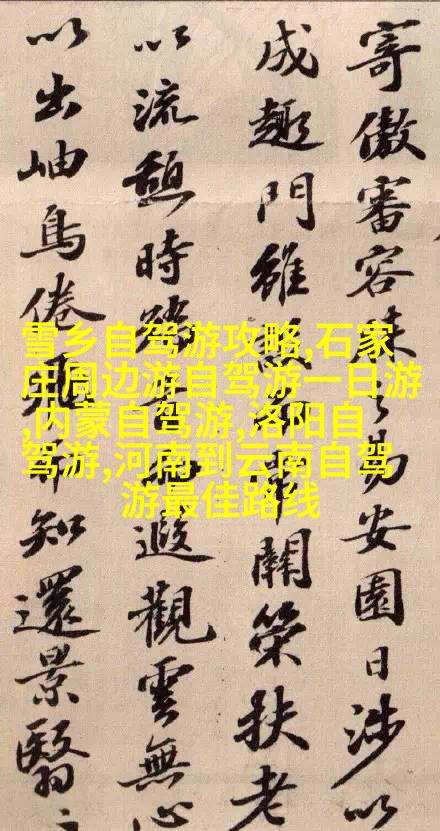 雪乡自驾游攻略,石家
庄周边游自驾游一日游
,内蒙自驾游,洛阳自
驾游,河南到云南自驾
游最佳路线
寄傲審容膝之易安園日涉以
成趣門雖設而常關策扶老
以流憩時矯首而遐觀雲無心
以出岫鳥倦飛而知還景翳